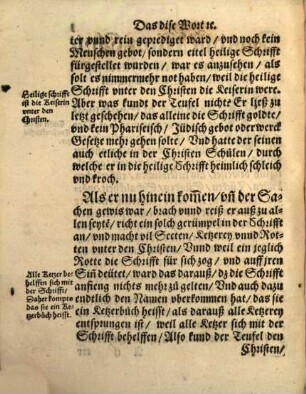 Das dise Wort ꝛc.
ter vnnd rein geprediget ward / vnd noch kein
Menschen gebot / sondern eitel heilige Schrifft
fürgestellet wurden / war es anzusehen / als
solt es nimmermehr not haben / weil die heilige
Schrifft vnter den Christen die Keiserin were.
Heilige schrifft
ist die Keiserin
vnter den
Christen.
Aber was kundt der Teufel nicht? Er ließ zu
letzt geschehen / das alleine die Schrifft goldte /
vnd kein Phariseisch / Jüdisch gebot oder werck
Gesetze mehr gehen solte / Vnd hatte der seinen
auch etliche in der Christen Schülen / durch
welche er in die heilige Schrifft heimlich schlich
vnd kroch.
Als er nu hinein kom̃en / vñ der Sa-
chen gewis war / brach vnnd reiß er auß zu al-
len seytē / richt ein solch gerümpel in der Schrifft
an / vnd macht vil Secten / Ketzerey vnnd Rot-
ten vnter den Christen / Vnnd weil ein jeglich
Rotte die Schrifft für sich zog / vnd auff jren
Sin̄ deütet / ward das darauß / dz die Schrifft
anfieng nichts mehr zů gelten / Vnd auch dazu
endtlich den Namen vberkommen hat / das sie
ein Ketzerbüch heisst / als darauß alle Ketzerey
entsprungen ist / weil alle Ketzer sich mit der
Schrifft behelffen / Also kund der Teufel den
Alle Ketzer be-
helffen sich mit
der Schrifft /
Daher kompts
das sie ein Ke-
tzerbüch heisst.
Christen /